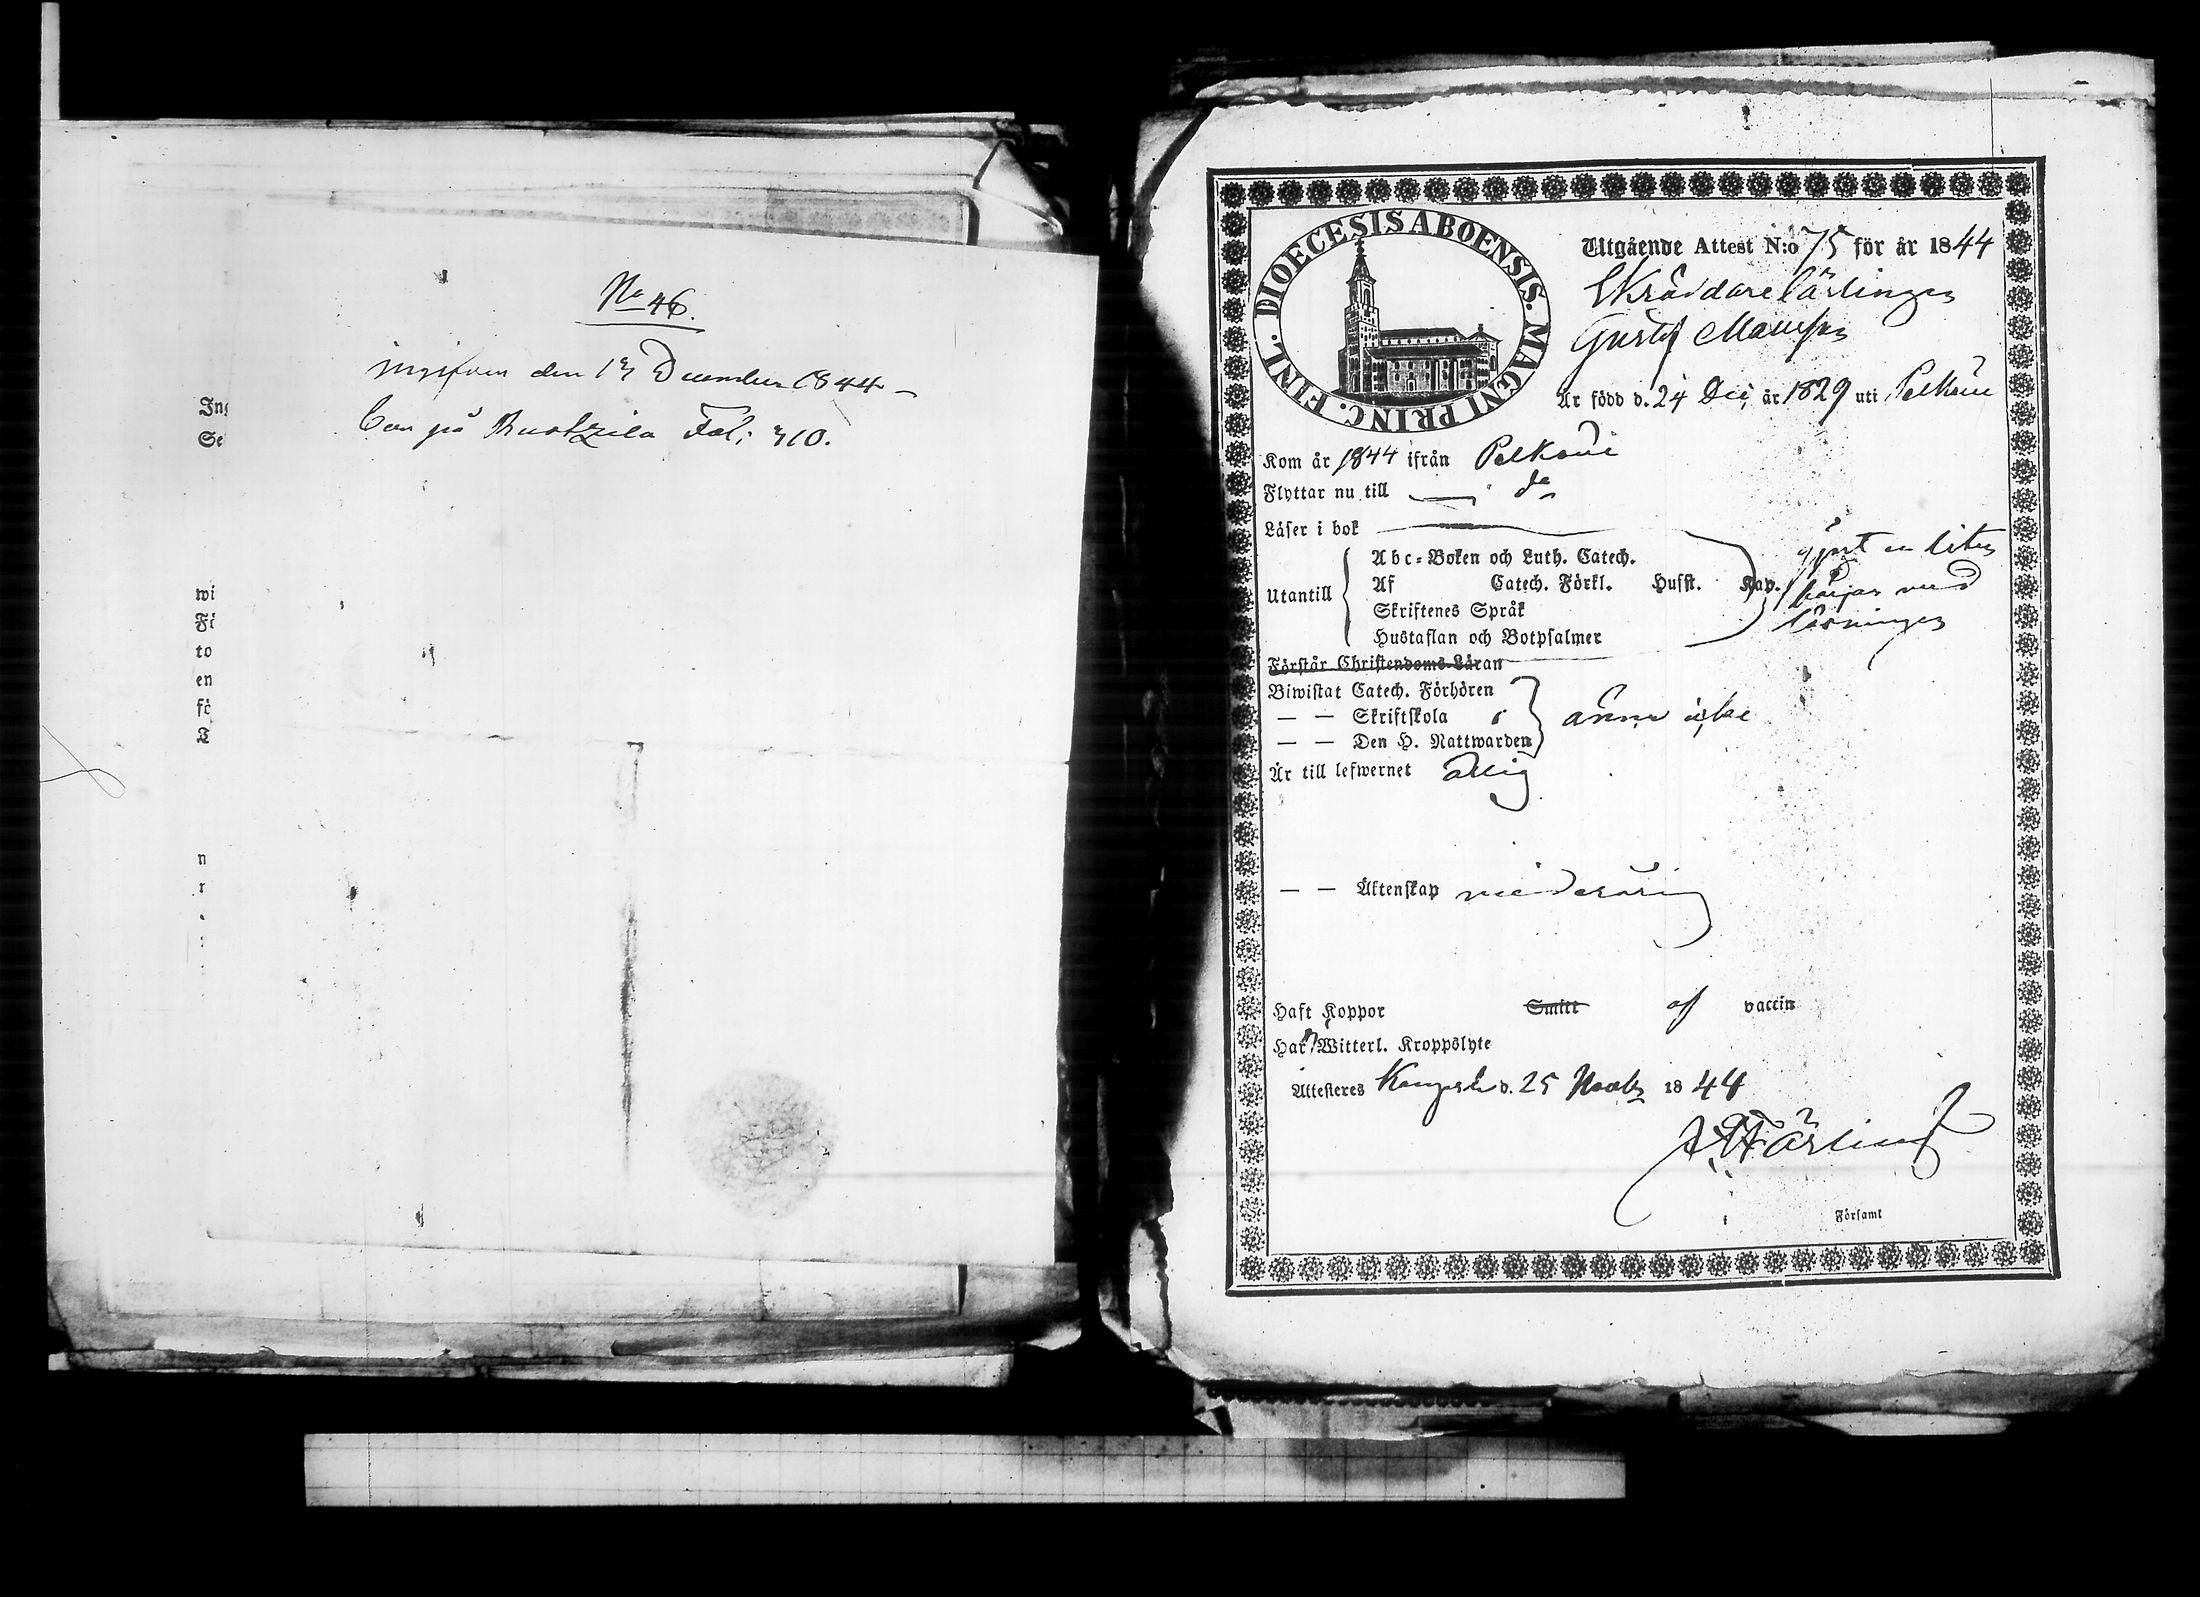 No 46.
den 13 December 1844
på Fol: 310.
In
Se
wi
Fi
to
en
fö
T
n
r
DIOECESIS ABOENSIS. MAGNI PRINC. FINL.
Utgående Attest N:o 75 för år 1844
Skräddare Lärlingen
Gustaf
Är född d. 24 Dec; år 1829 uti Pelkäne
Kom år 1844 ifrån Pelkäne
Flyttar nu till — do
Läser i bok
Utantill
Abc-Boken och Luth. Catech.
Af Catech. Förkl. Hufst. Kap.
Skriftenes Språk
Hustaflan och Botpsalmer
gjort en liten
början med
läsningen
Förstår Christendoms-Läran
Biwistat Catech. Förhören
— — Skriftskola
— — Den H. Nattwarden
ännu icke
Är till lefwernet ärlig
— — Äktenskap minderårig
Haft Koppor Smitt af vaccin
Har Witterl. Kroppslyte
Attesteres d. 25 Novb 1844
Församl